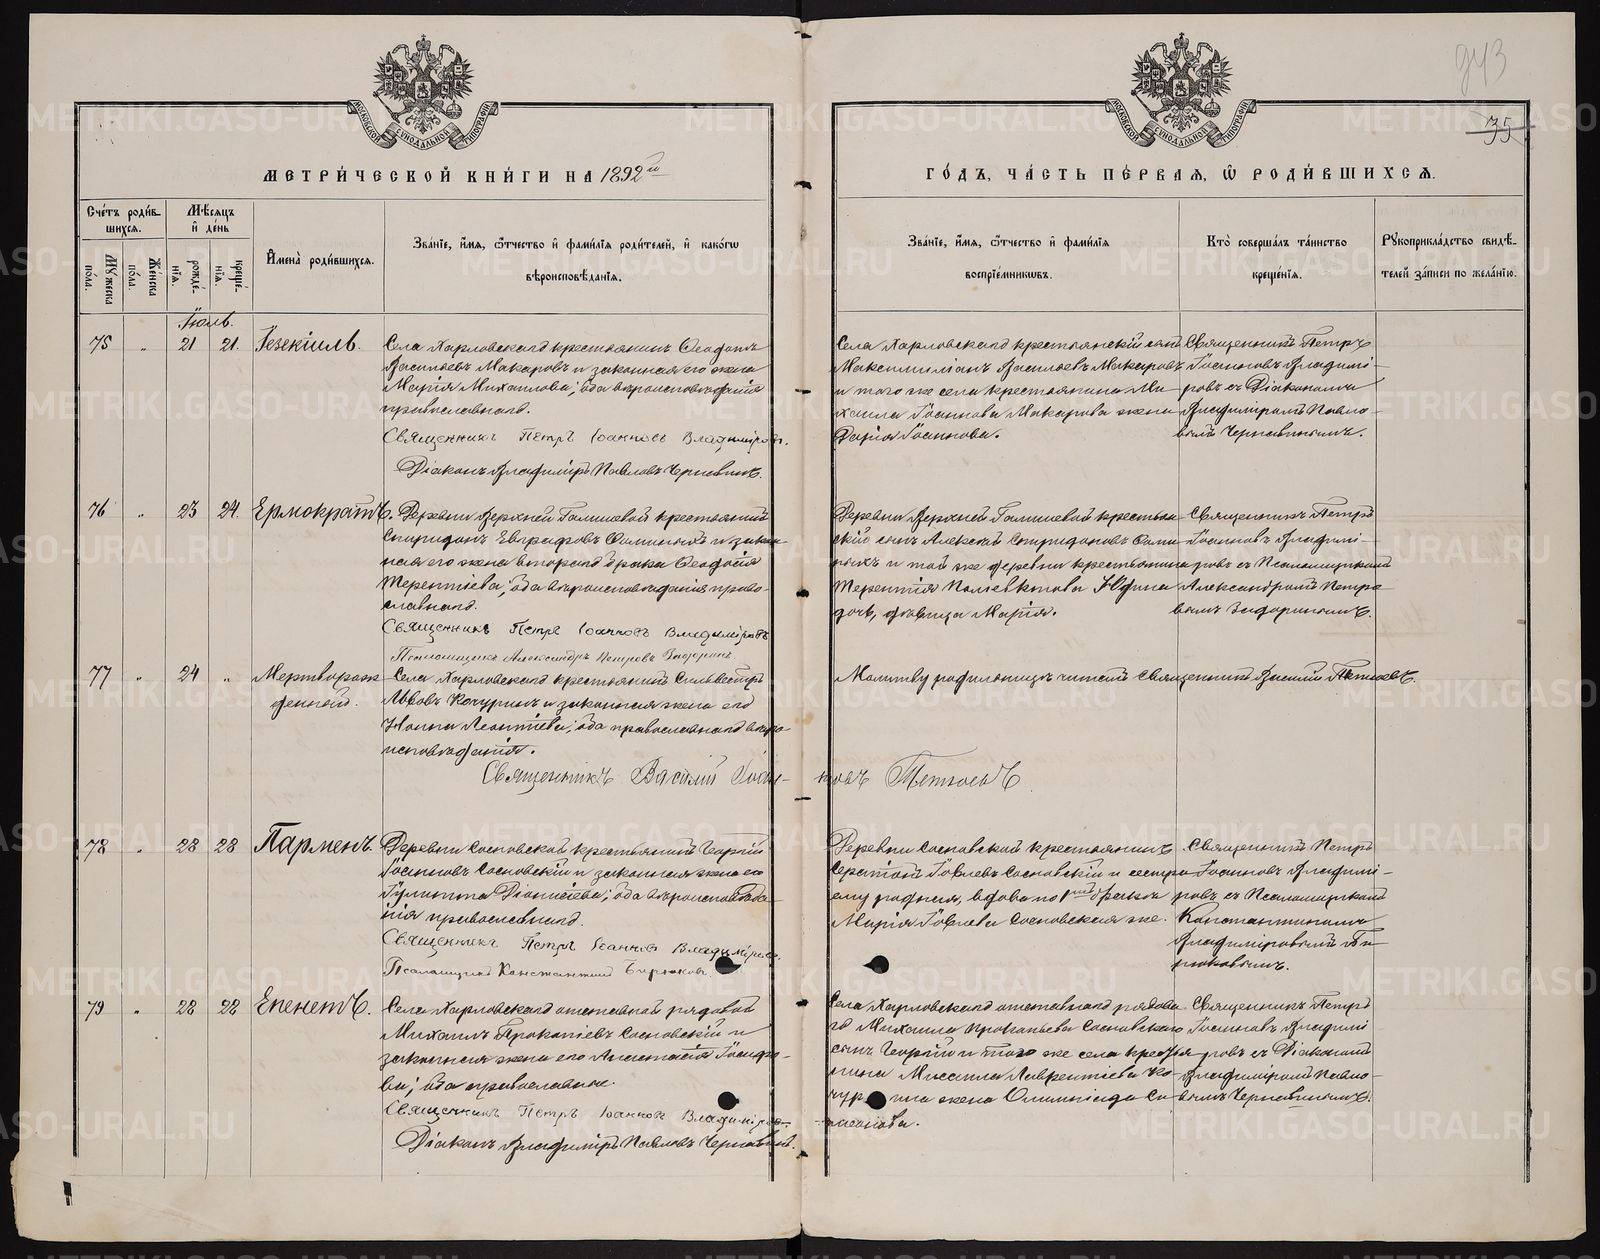 943
35
МОСКОВСКОЙ СѴНОДАЛЬНОЙ ТИПОГРАФІИ
МОСКОВСКОЙ СѴНОДАЛЬНОЙ ТИПОГРАФІИ
МЕТРИ́ЧЕСКОЙ КНИ́ГИ НА 1892й
ГО́ДЪ, ЧА́СТЬ ПЕ́РВАЯ, Ѿ РОДИ́ВШИХСѦ.
Сче́тъ роди́в-
шихся.
Мѣ́сяцъ
и҆ де́нь
Му́жеска по́ла.
Же́нска по́ла.
рожде́-
нїя.
креще́-
нїя.
И҆мена̀ роди́вшихся.
Зва́нїе, и҆́мя, ѻ҆́тчество и҆ фами́лїя роди́телей, и҆ како́гѡ
вѣроисповѣ́данїя.
Зва́нїе, и҆́мя, ѻ҆́тчество и҆ фами́лїя
воспрїе́мникѡвъ.
Кто̀ соверша́лъ та́инство
креще́нїя.
Рꙋкоприкла́дство свидѣ́-
телей за́писи по жела́нїю.
Іюль.
75 " 21 21. Іезекіиль.
Села Харловскаго крестьянинъ Ѳеодотъ
Васильевъ Макаровъ и законная его жена
Марія Михаилова; оба вѣроисповѣданія
православнаго.
Священникъ Петръ Іоанновъ Владиміровъ.
Діаконъ Владиміръ Павловъ Чернавинъ.
Села Харловскаго крестьянскій сынъ
Максимиліанъ Васильевъ Макаровъ
и того же села крестьянина Ми-
хаила Іоаннова Макарова жена
Дарія Іоаннова.
Священникъ Петръ
Іоанновъ Владимі-
ровъ съ Діакономъ
Владиміромъ Павло-
вымъ Чернавинымъ.
76 " 23 24. Ермократъ.
Деревни Верхней Галишевой крестьянинъ
Спиридонъ Евграфовъ Ѳоминыхъ и закон-
ная его жена втораго брака Ѳеодосія
Терентіева; оба вѣроисповѣданія право-
славнаго.
Священникъ Петръ Іоанновъ Владиміровъ
Псаломщикъ Александръ Петровъ
Деревни Верхней Галишевой крестьян-
скій сынъ Алексѣй Спиридоновъ Ѳоми-
ныхъ и той же деревни крестьянина
Терентія
дочь, дѣвица Марія.
Священникъ Петръ
Іоанновъ Владимі-
ровъ съ Псаломщикомъ
Александромъ Петро-
вымъ
77 " 24 " Мертворож-
денный.
Села Харловскаго крестьянинъ Сильвестръ
Львовъ Кочуринъ и законная жена его
Нонна Леонтіева; оба православнаго вѣро-
исповѣданія.
Священникъ Василій Іоан-новъ
Молитву родильницѣ читалъ Священникъ Василій
78 " 28 28 Парменъ.
Деревни Сосновской крестьянинъ Георгій
Іоанновъ Сосновскій и законная жена его
Іулитта Діонисіева; оба вѣроисповѣда-
нія православнаго.
Священникъ Петръ Іоанновъ Владиміровъ.
Псаломщикъ Константинъ Бирюковъ.
Деревни Сосновской крестьянинъ
Серапіонъ Іовлевъ Сосновскій и сестра
ему родная, вдова по 1му браку
Марія Іовлева Сосновская же.
Священникъ Петръ
Іоанновъ Владимі-
ровъ съ Псаломщикомъ
Константиномъ
Владиміровымъ Би-
рюковымъ.
79 " 28 28 Епенетъ.
Села Харловскаго отставной рядовой
Михаилъ Прокопіевъ Сосновскій и
законная жена его Анастасія Іосифо-
ва; оба православные.
Священникъ Петръ Іоанновъ Владиміровъ
Діаконъ Владиміръ Павловъ Чернавинъ.
Села Харловскаго отставнаго рядова-
го Михаила Прокопьева Сосновскаго
сынъ Георгій и того же села крестья-
нина Лаврентіева Ко-
чурина жена Олимпіада
Священникъ Петръ
Іоанновъ Владимі-
ровъ съ Діакономъ
Владиміромъ Павло-
вымъ Чернавинымъ.
METRIKI.GASO-URAL.RU